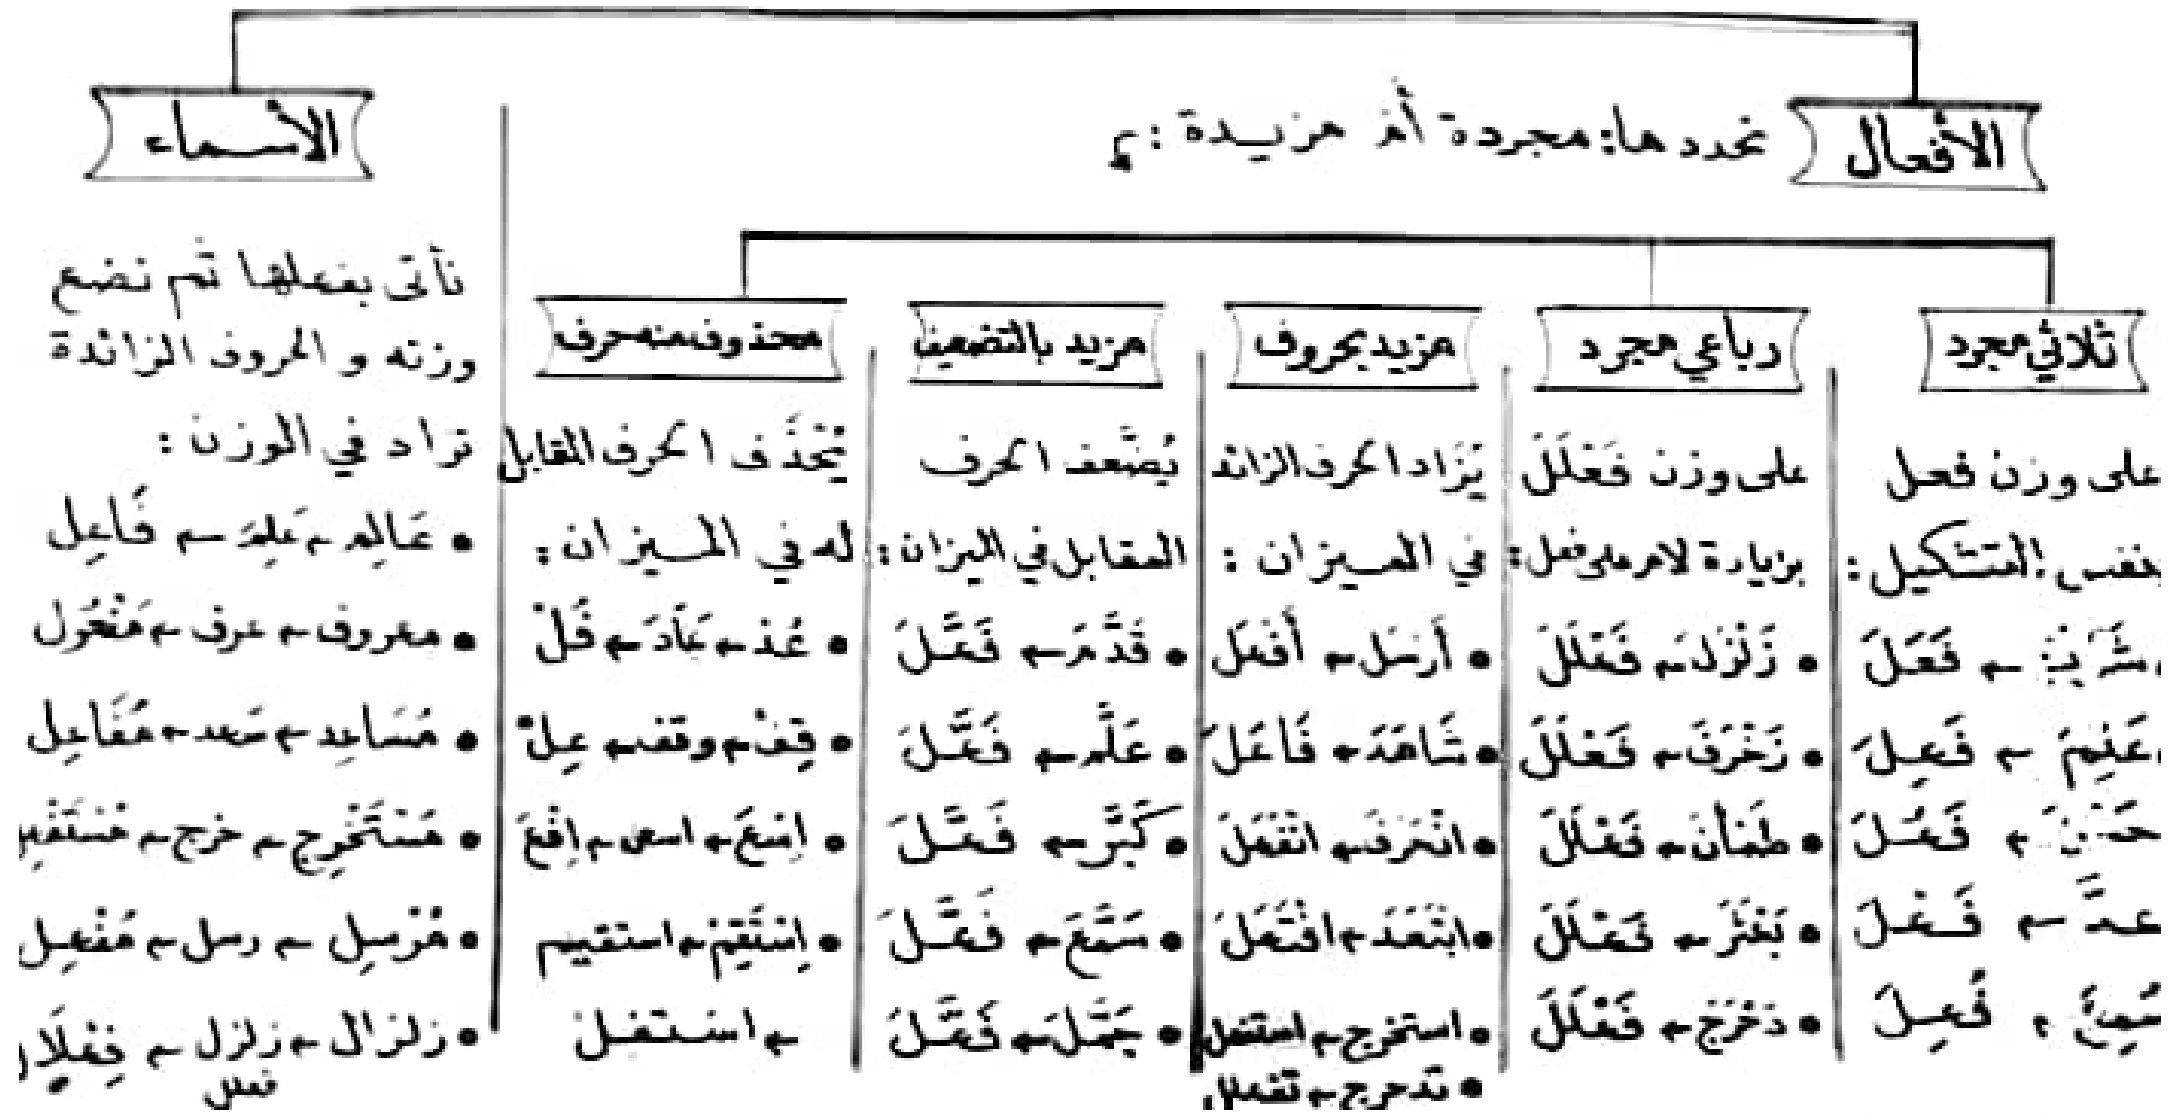 الأفعال
نحددها: مجردة أم مزيدة:
ثلاثي مجرد
على وزن فعل
بنفس التشكيل:
شَرِبَ ← فَعَلَ
عَلِمَ ← فَعِلَ
حَسُنَ ← فَعُلَ
عدَّ ← فَعْلَ
سُمِعَ ← فُعِلَ
رباعي مجرد
على وزن فَعْلَلَ
بزيادة لام على فعل:
• زَلْزَلَ ← فَعْلَلَ
• زَخْرَفَ ← فَعْلَلَ
• طَمْأَنَ ← فَعْلَلَ
• بَعْثَرَ ← فَعْلَلَ
• دَحْرَجَ ← فَعْلَلَ
مزيد بحروف
يُزَاد الحرف الزائد
في الميزان:
• أَرسَل ← أَفعَل
• شَاهَدَ ← فَاعَلَ
• انْحَرَفَ ← انْفَعَلَ
• ابْتَعَدَ ← افْتَعَلَ
• استخرج ← استفعل
• تدحرج ← تفعلل
مزيد بالتضعيف
يُضَعَّف الحرف
المقابل في الميزان:
• قَدَّمَ ← فَعَّلَ
• عَلَّم ← فَعَّلَ
• كَبَّر ← فَعَّلَ
• سَمَّعَ ← فَعَّلَ
• جَمَّلَ ← فَعَّلَ
محذوف منه حرف
يُحْذَف الحرف المقابل
له في الميزان:
• عُد ← عَادَ ← فُلْ
• قِفْ ← وقف ← عِلْ
• اِسْعَ ← اسعى ← اِفْعَ
• اِسْتَقِمْ ← استقيم
← استفل
الأسماء
نأتى بفعلها ثم نضع
وزنه و الحروف الزائدة
تزاد في الوزن:
• عَالِم ← عَلِمَ ← فَاعِل
• معروف ← عرف ← مَفْعُول
• مُسَاعِد ← سَعد ← مُفَاعِل
• مُسْتَخْرِج ← خرج
• مُرْسِل ← رسل ← مُفْعِل
• زلزال ← زلزل ← فِعْلَال
فعلل